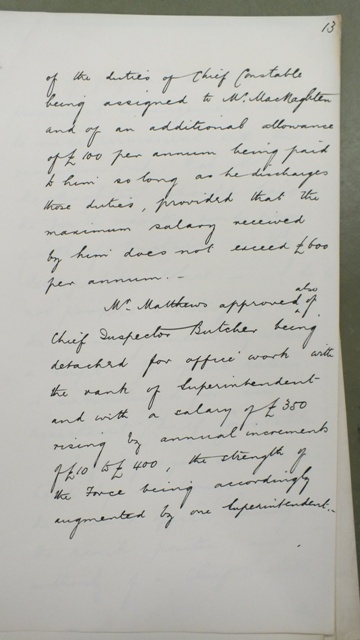 13
of the duties of Chief Constable
being assigned to Mr. MacNaghten
and of an additional allowance
of £100 per annum being paid
to him so long as he discharges
those duties, provided that the
maximum salary received
by him does not exceed £600
per annum. –
Mr. Matthews approved also of
Chief Inspector Butcher being
detached for office work with
the rank of Superintendent
and with a salary of £350
rising by annual increments
of £10 to £400, the strength of
the Force being accordingly
augmented by one Superintendent. –